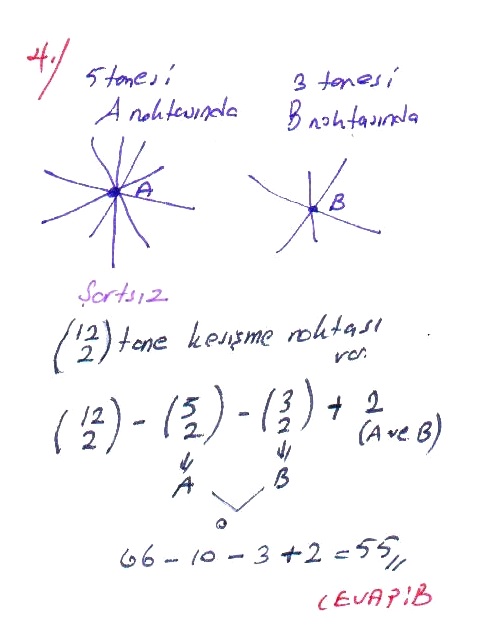 4./
5 tanesi
A noktasında
3 tanesi
B noktasında
A
B
Şartsız
(12 2) tane kesişme noktası
var.
(12 2) - (5 2) - (3 2) + 2
(A ve B)
A
B
0
66 - 10 - 3 + 2 = 55 //
CEVAP: B